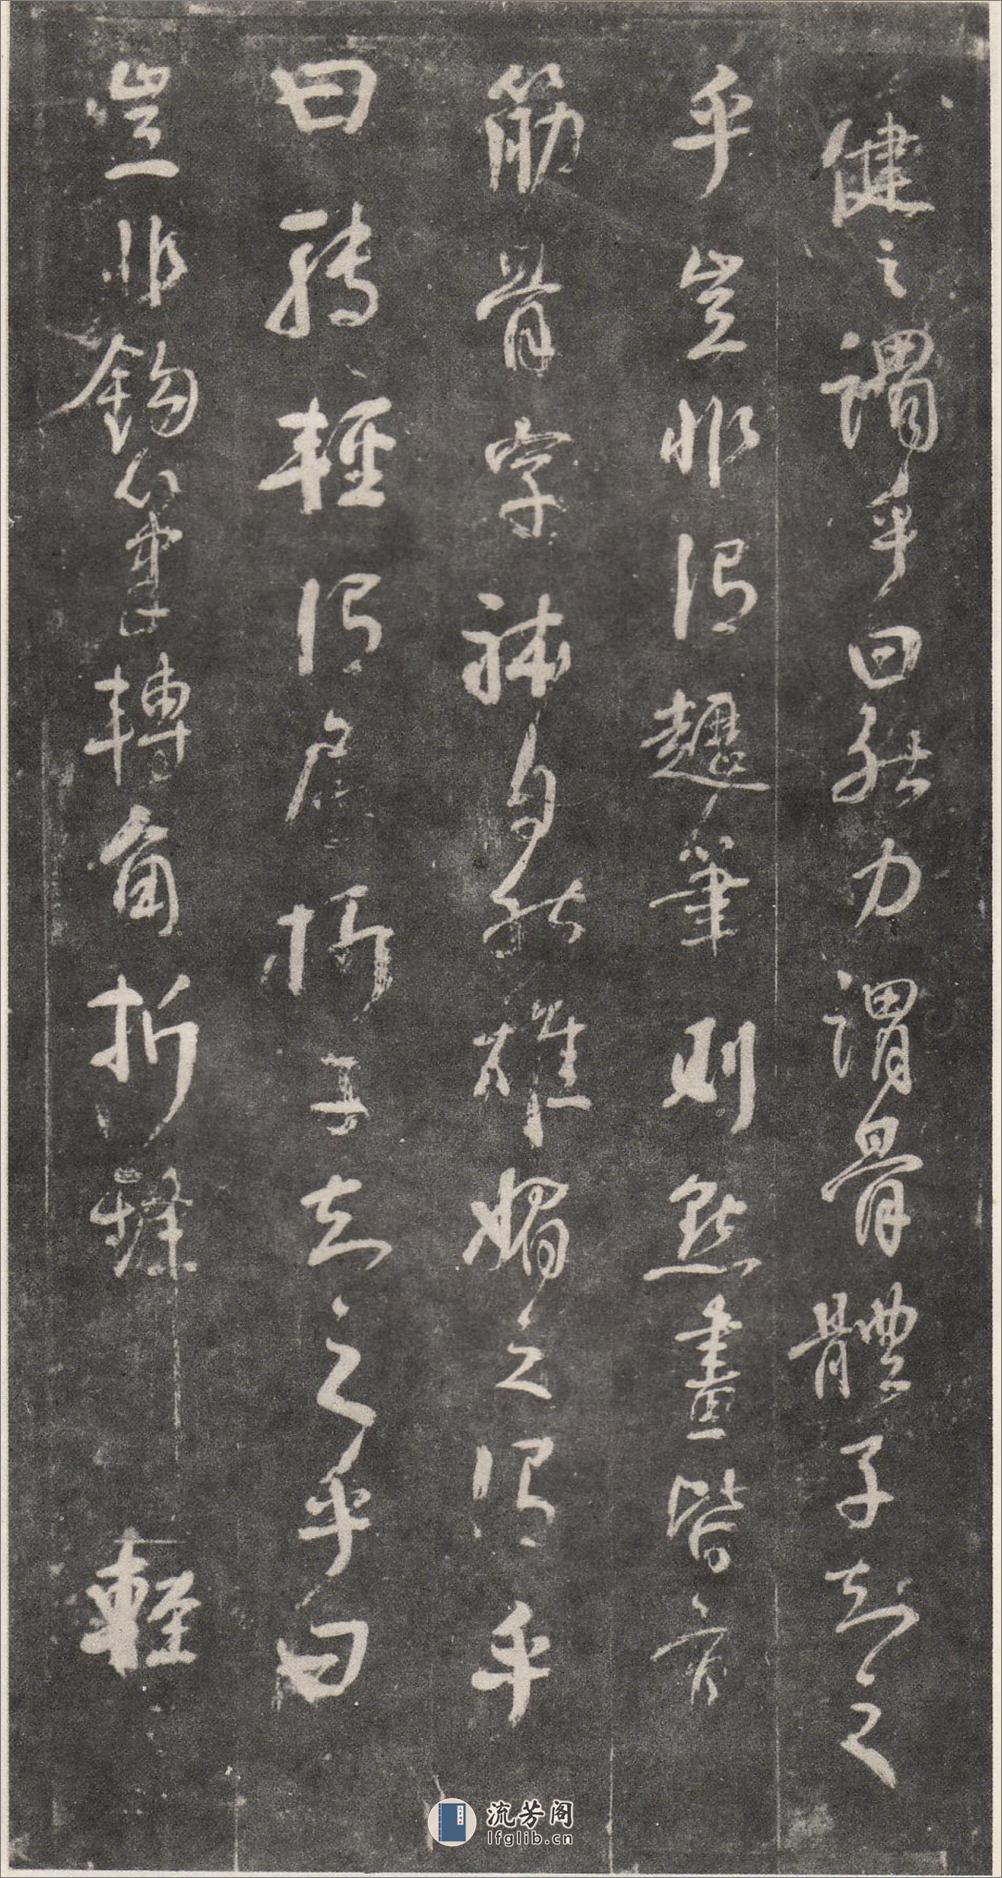 健之謂乎曰然力謂骨體子知之
乎豈非謂趯筆則點畫皆有
筋骨字體自然雄媚之謂乎
曰轉輕謂屈折子知之乎曰
豈非鈎筆轉角折鋒輕
流芳阁
lfglib.cn